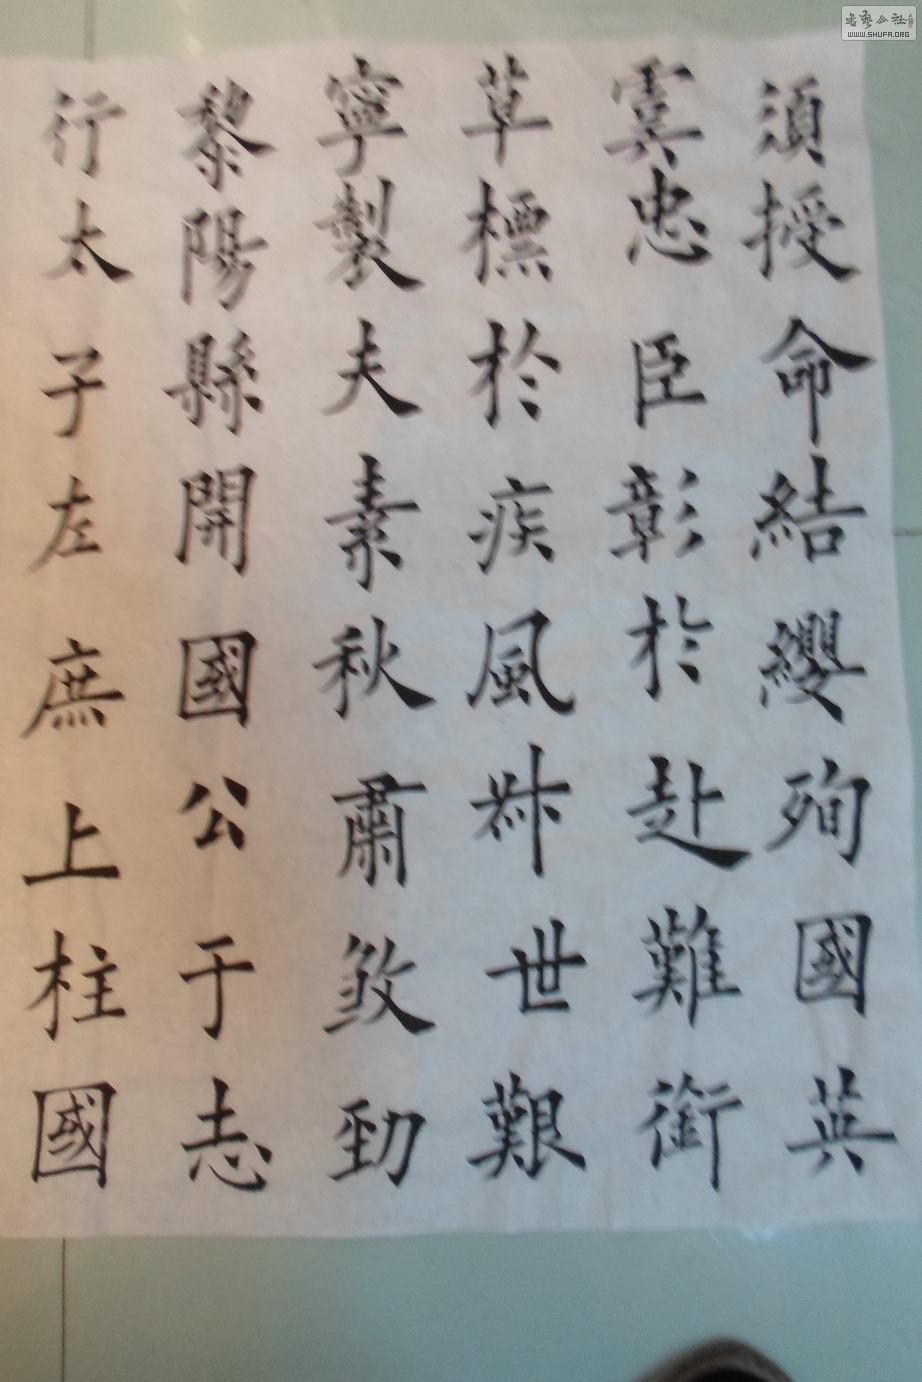 行太子左庶上柱國
黎陽縣開國公于志
寧製夫素秋肅煞勁
草標於疾風叔世艱
虞忠臣彰於赴難銜
須授命結纓殉國英
書藝公社
WWW.SHUFA.ORG